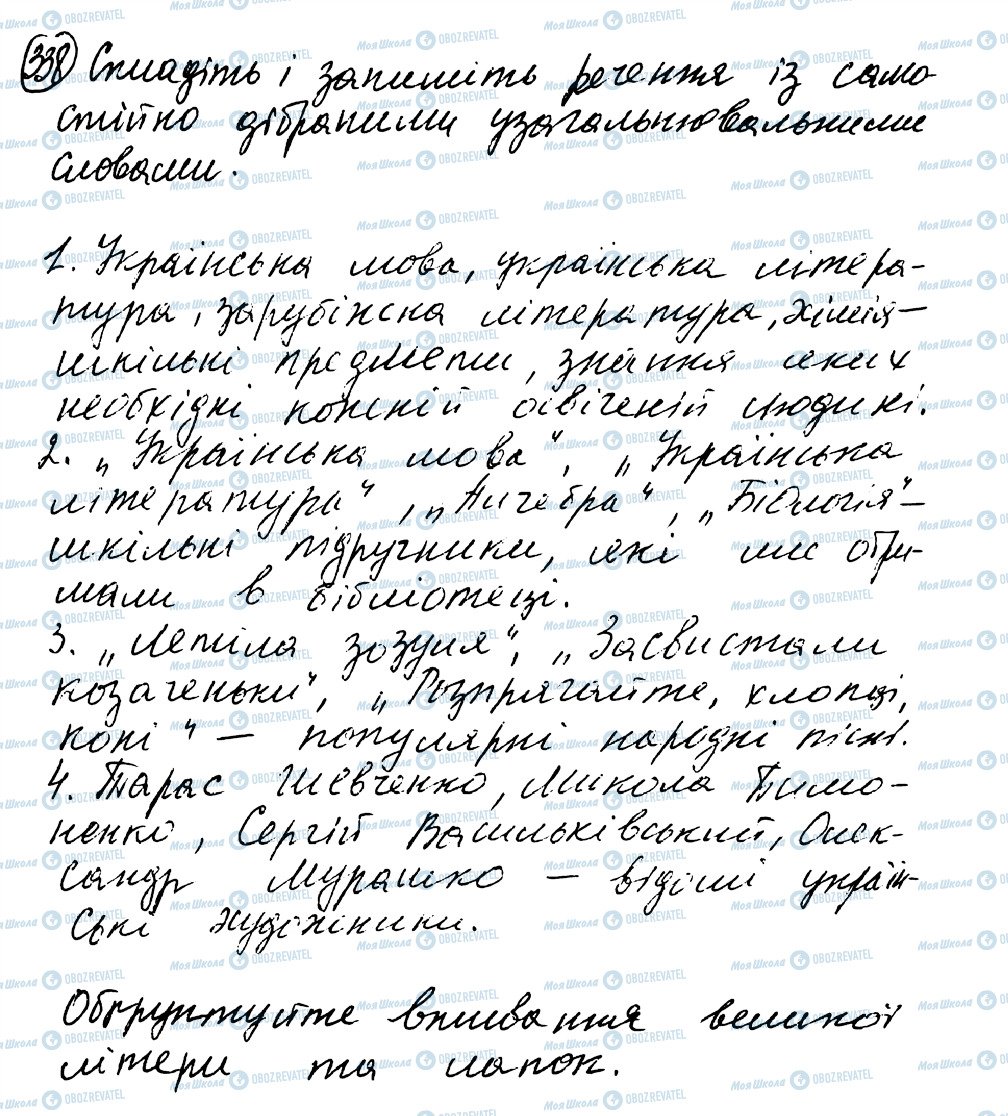 338 Складіть і запишіть речення із само
стійно дібраними узагальнювальними
словами.
1. Українська мова, українська літера-
тура, зарубіжна література, хімія —
шкільні предмети, знання яких
необхідні кожній освіченій людині.
2. „Українська мова“, „Українська
література“, „Алгебра“, „Біологія“ —
шкільні підручники, які ми отри-
мали в бібліотеці.
3. „Летіла зозуля“, „Засвистали
козаченьки“, „Розпрягайте, хлопці,
коні“ — популярні народні пісні.
4. Тарас Шевченко, Микола Пимо-
ненко, Сергій Васильківський, Олек-
сандр Мурашко — відомі україн-
ські художники.
Обґрунтуйте вживання великої
літери та лапок.